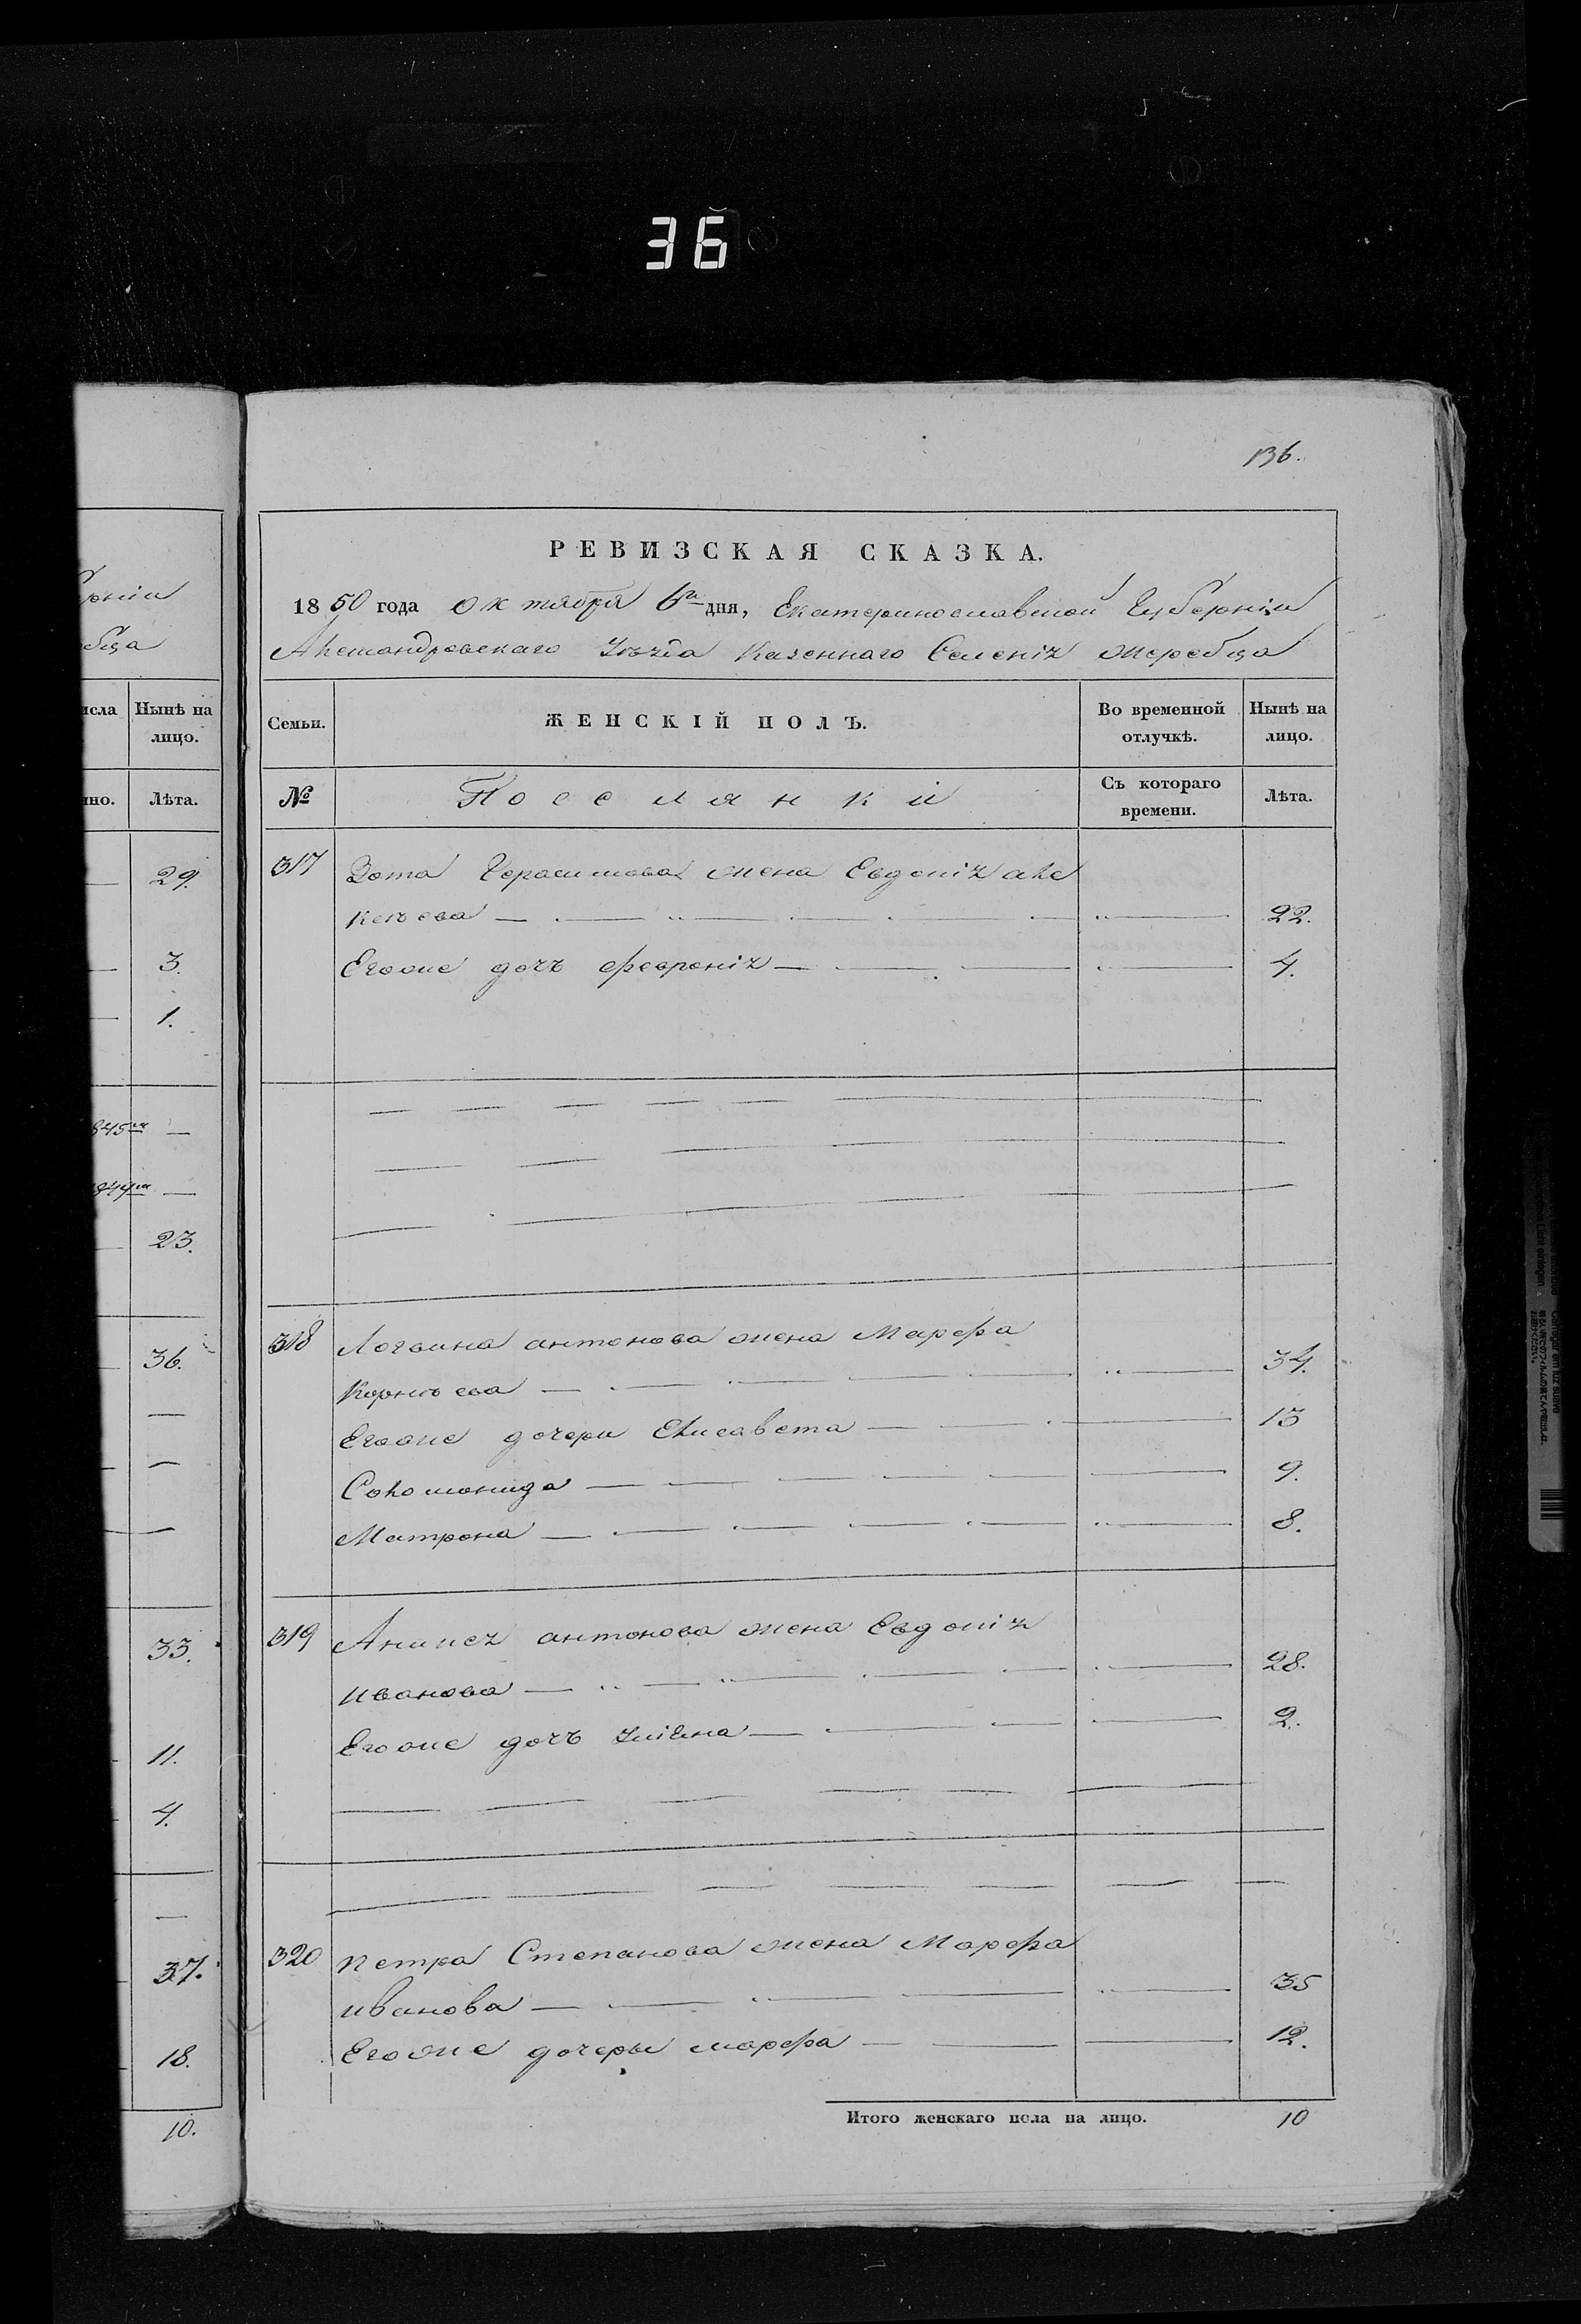 36
136.
РЕВИЗСКАЯ СКАЗКА.
1850 года октября 6го дня, Екатеринославской Губерніи
Александровскаго Уѣзда Казеннаго Селенія Жеребца
Семьи. ЖЕНСКІЙ ПОЛЪ. Во временной отлучкѣ. Нынѣ на лицо.
№ Поселянки Съ котораго времени. Лѣта.
317 Зота Герасимова жена Евдокія але
ксѣева 22.
Егоже дочь февронія 4.
318 Логвина антонова жена Марфа
Корнѣева 34.
Егоже дочери Елисавета 13
Соломонида 9.
Матрона 8.
319 антонова жена Евдокія
иванова 28.
Егоже дочь 2.
320 петра Степанова жена Марфа
иванова 35
Егоже дочери марфа 12.
Итого женскаго пола на лицо. 10
рніи
бца
исла Нынѣ на лицо.
но. Лѣта.
29.
3.
1.
845го
1844го
23.
36.
33.
11.
4.
37.
18.
10.